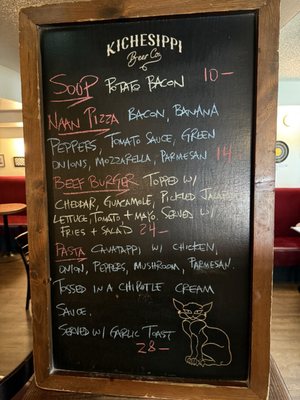 KICHESIPPI
Beer Co.
SOUP POTATO BACON 10-
NAAN PIZZA BACON, BANANA
PEPPERS, TOMATO SAUCE, GREEN
ONIONS, MOZZARELLA, PARMESAN 14
BEEF BURGER TOPPED W/
CHEDDAR, GUACAMOLE, PICKLED JALAPEÑO
LETTUCE, TOMATO + MAYO. SERVED W/
FRIES + SALAD 24-
PASTA CAVATAPPI W/ CHICKEN,
ONION, PEPPERS, MUSHROOM, PARMESAN.
TOSSED IN A CHIPOTLE CREAM
SAUCE.
SERVED W/ GARLIC TOAST
28-